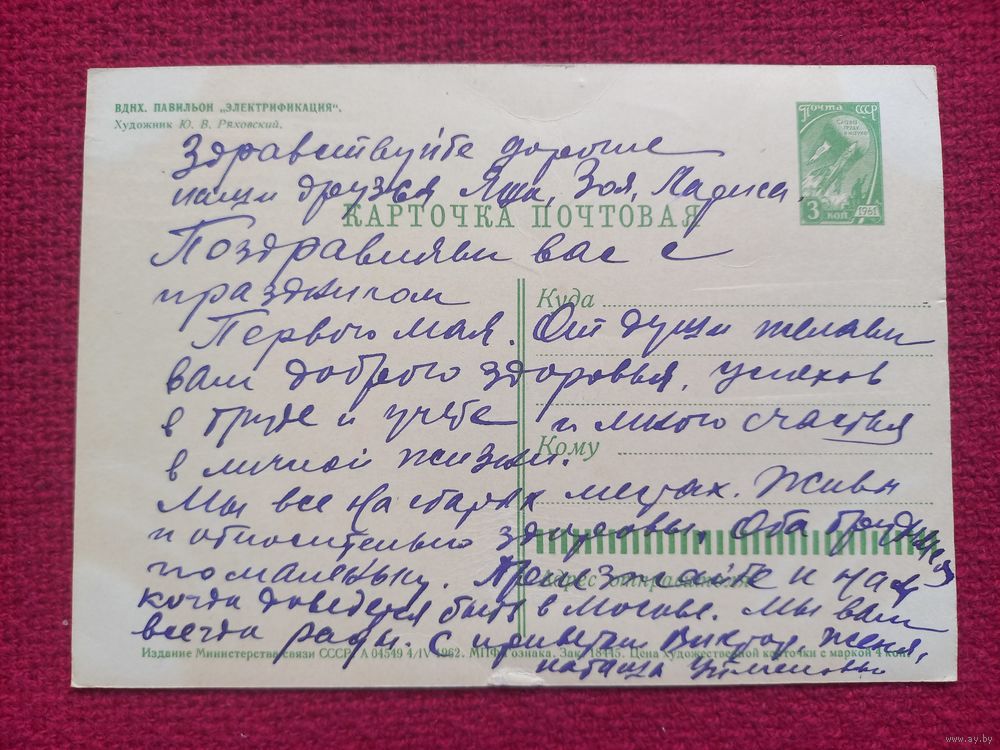 ВДНХ. ПАВИЛЬОН „ЭЛЕКТРИФИКАЦИЯ“.
Художник Ю. В. Ряховский.
Почта СССР
СЛАВА ТРУДУ И НАУКЕ
3 КОП 1961
Здравствуйте дорогие
наши друзья Яша, Зоя, Лариса.
КАРТОЧКА ПОЧТОВАЯ
Поздравляем вас с
праздником
Куда
Первого мая. От души желаем
вам доброго здоровья, успехов
в труде и учебе и много счастья
Кому
в личной жизни.
Мы все на старых местах. Живы
и относительно здоровы. Оба трудимся
помаленьку. Приезжайте к нам
Адрес отправителя
когда доведется быть в Москве. Мы вам
всегда рады. С приветом Виктор, Женя,
Издание Министерства связи СССР. А 04549 4/IV 1962. МПФ Гознака. Зак. 18445. Цена художественной карточки с маркой 4 коп.
Наташа
www.ay.by